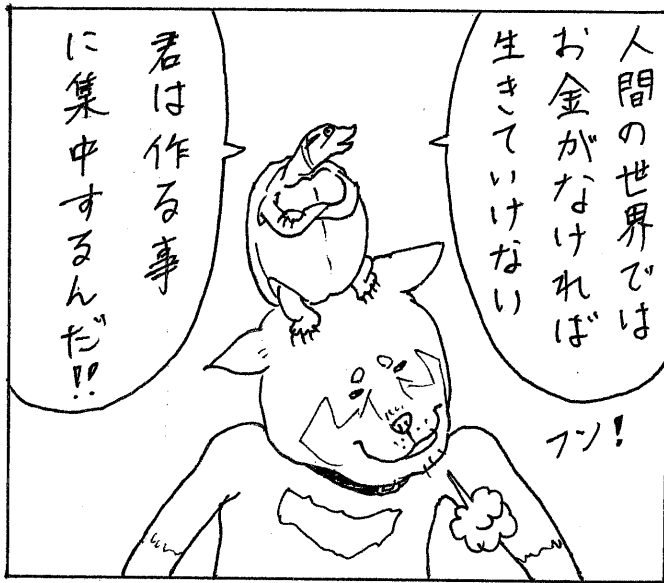 人間の世界では
お金がなければ
生きていけない
フン!
君は作る事
に集中するんだ!!